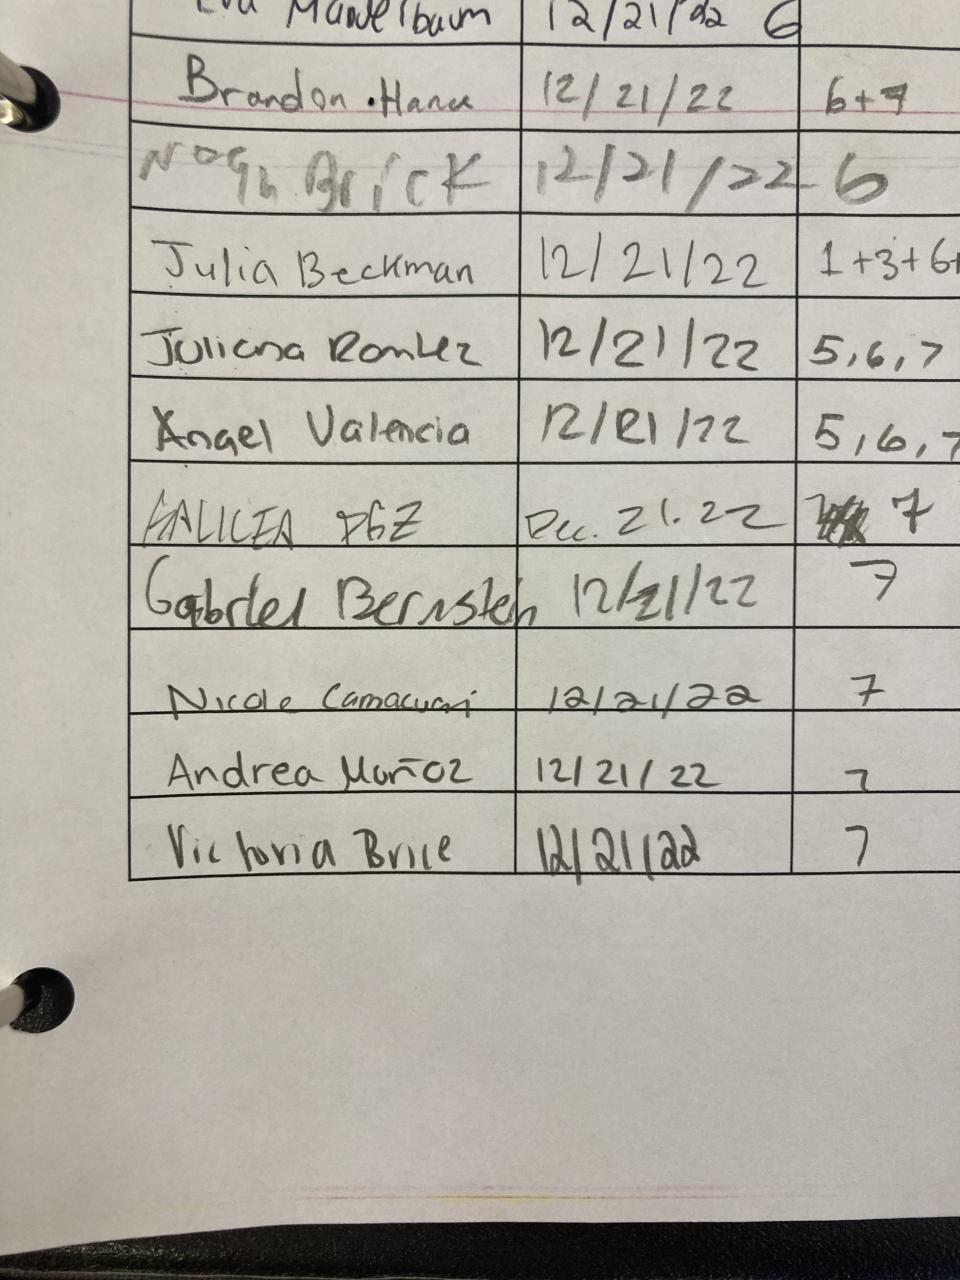 12/21/22 6
Brandon 12/21/22 6+7
Noah Brick 12/21/22 6
Julia Beckman 12/21/22 1+3+6+
Juliana 12/21/22 5,6,7
Angel Valencia 12/21/22 5,6,7
GALICIA Dec. 21. 22 7
Gabriel Bernstein 12/21/22 7
Nicole 12/21/22 7
Andrea Muñoz 12/21/22 7
Victoria Brice 12/21/22 7